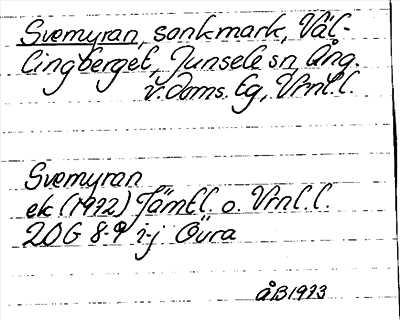 Svemyran, sankmark, Väl-
lingberget, Junsele sn, Ång.
v. doms. lg, Vrnl. l.
Svemyran
ek (1972) Jämtl. o. Vrnl. l.
20G 8-9 i-j Övra
åB1973